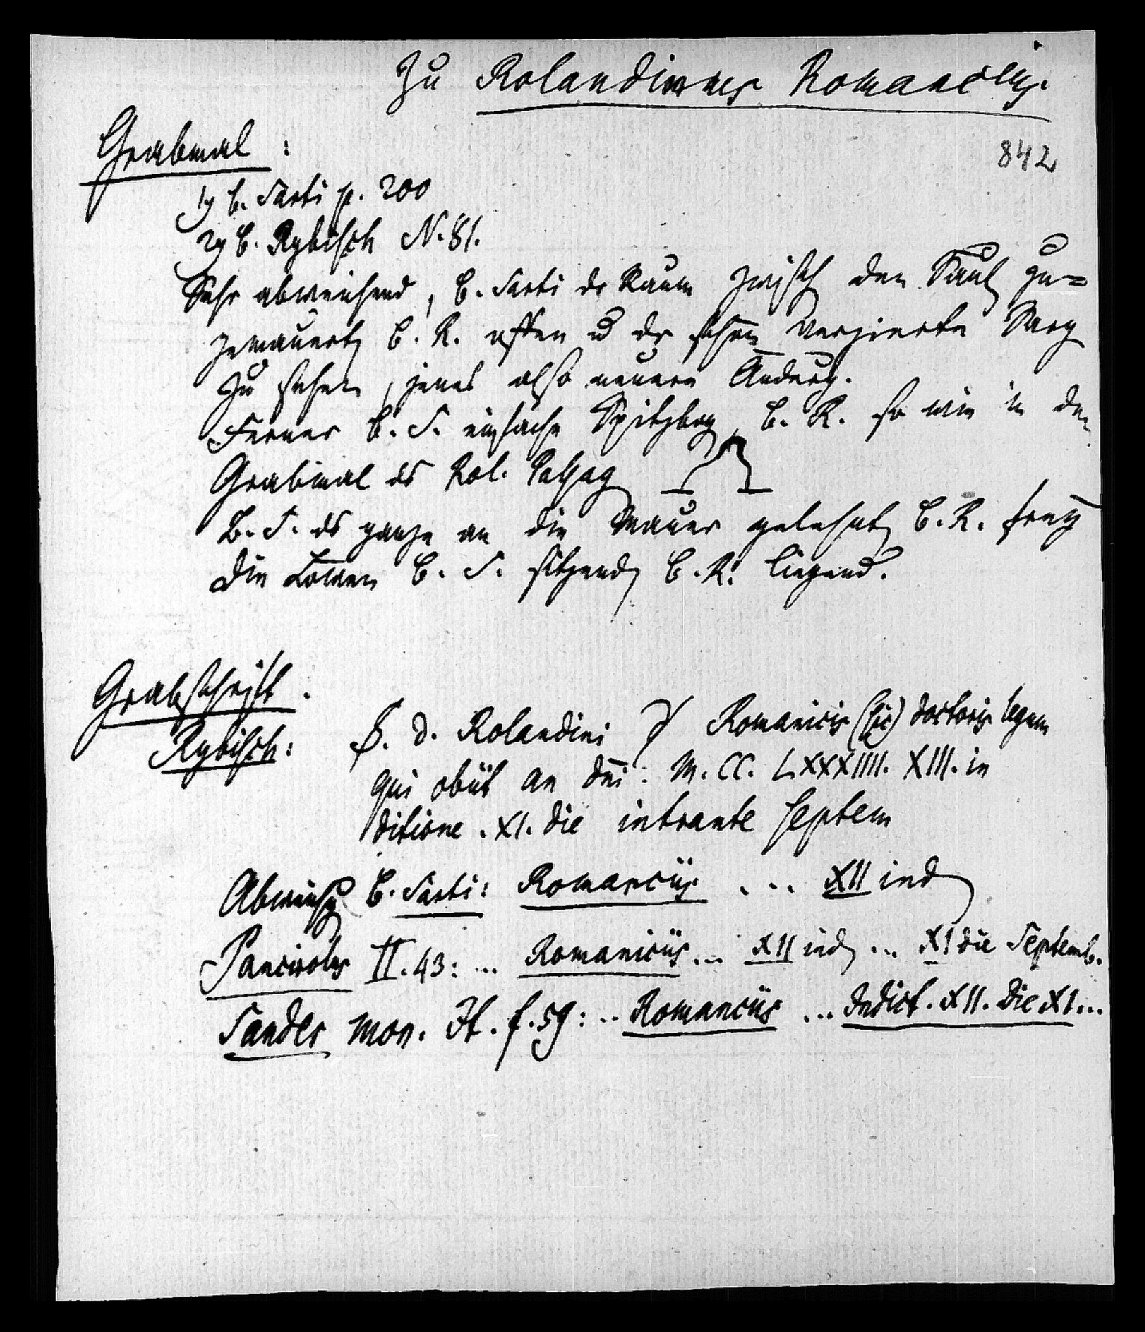 Zu Rolandinus Romancius.
842
Grabmal :
1) b. Sarti p. 200
2) b. Rybisch N. 81.
Sehr abweichend, b. Sarti der Raum zwisch den Säul zu=
gemauert, b. R. offen u der schön verzierte Sarg
zu sehen, jenes also neuere Änderg.
Ferner b. S. einfache Spitzbog, b. R. so wie in dem
Grabmal des Rol. Passag
b. S. das ganze an die Mauer gelehnt, b. R. frey
die Löwen b. S. sitzend, b. R. liegend.
Grabschrift.
Rybisch: S. d. Rolandini Romanicis (sic) doctoris legum
qui obiit an dni : M. CC. LXXXIIII. XIII. in
ditione . XI. die intrante septem
Abweichg b. Sarti: Romancii ... XII ind
Pancirolus II. 43: ... Romanicii ... XII ind ... XI die Septemb.
Sander mon. It. f. 59: .. Romancii ... Indict. XII. Die XI...